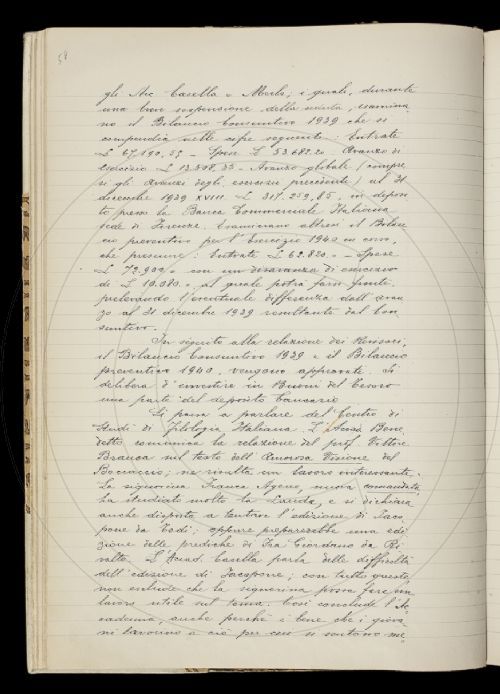 54
gli Acc. Casella e Merlo, i quali, durante
una breve sospensione della seduta, esamina
no il Bilancio Consuntivo 1939 che si
compendia nelle cifre seguenti: Entrate
£ 67.190,55 - Spese £ 53.682.20 Avanzo di
esercizio £ 13.508,35 - Avanzo globale (compre
si gli avanzi degli esercizi precedenti) al 31
dicembre 1939 XVIII £ 317.259,85, in deposi
to presso la Banca Commerciale Italiana
sede di Firenze. Esaminano altresì il Bilan
cio preventivo per l'Esercizio 1940 in corso,
che presume: Entrate £ 62.820.= - Spese
£ 72.900= con un disavanzo di esercizio
di £ 10.080.= al quale potrà farsi fronte
prelevando l'eventuale differenza dall'avan
zo al 31 dicembre 1939 resultante dal Con
suntivo.
In seguito alla relazione dei Revisori,
il Bilancio Consuntivo 1939 e il Bilancio
preventivo 1940 vengono approvati. Si
delibera d'investire in Buoni del Tesoro
una parte del deposito bancario
Si passa a parlare del Centro di
Studi di Filologia Italiana. L'Acad. Bene
detto comunica la relazione del prof. Vittore
Branca sul testo dell'Amorosa Visione del
Boccaccio; ne risulta un lavoro interessante.
La signorina Franca Ageno, nuova comandata,
ha studiato molto la Lauda, e si dichiara
anche disposta a tentare l'edizione di Jaco
pone da Todi; oppure preparerebbe una edi
zione delle prediche di Fra Giordano da Ri
valto. L'Acad. Casella parla delle difficoltà
dell'edizione di Jacopone; con tutto questo
non esclude che la signorina possa fare un
lavoro utile sul tema. Così conclude l'Ac
cademia, anche perché è bene che i giova
ni lavorino a ciò per cui si sentono me